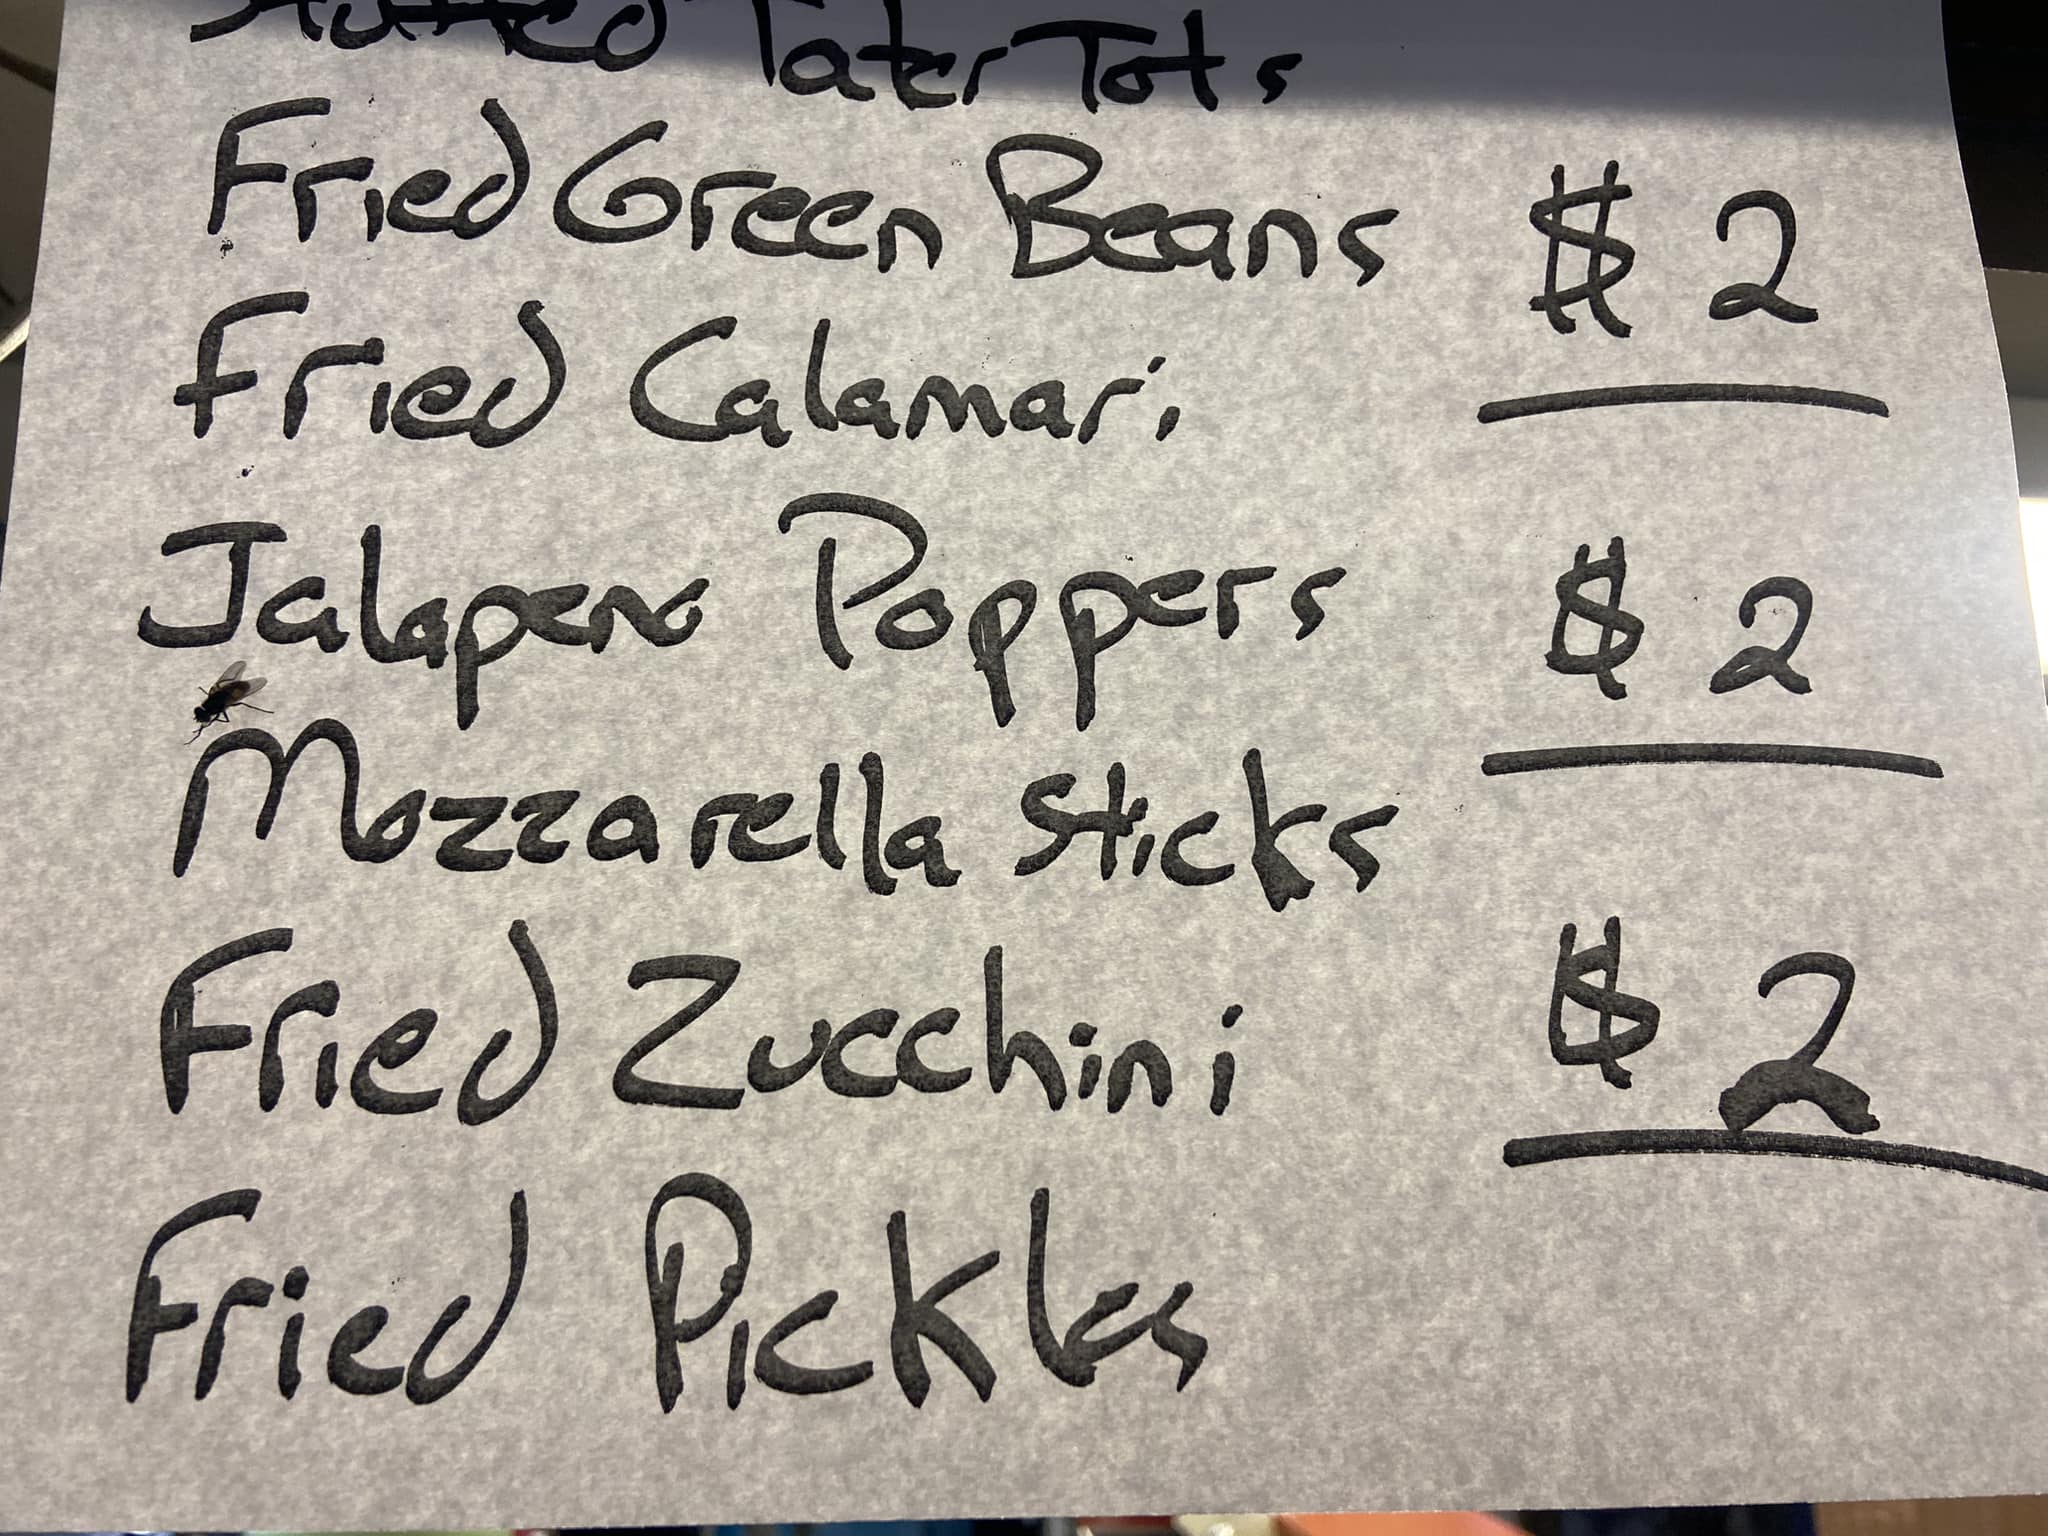 Stuffed Tater Tots
Fried Green Beans $ 2
Fried Calamari
Jalapeno Poppers $ 2
Mozzarella Sticks
Fried Zucchini $ 2
Fried Pickles